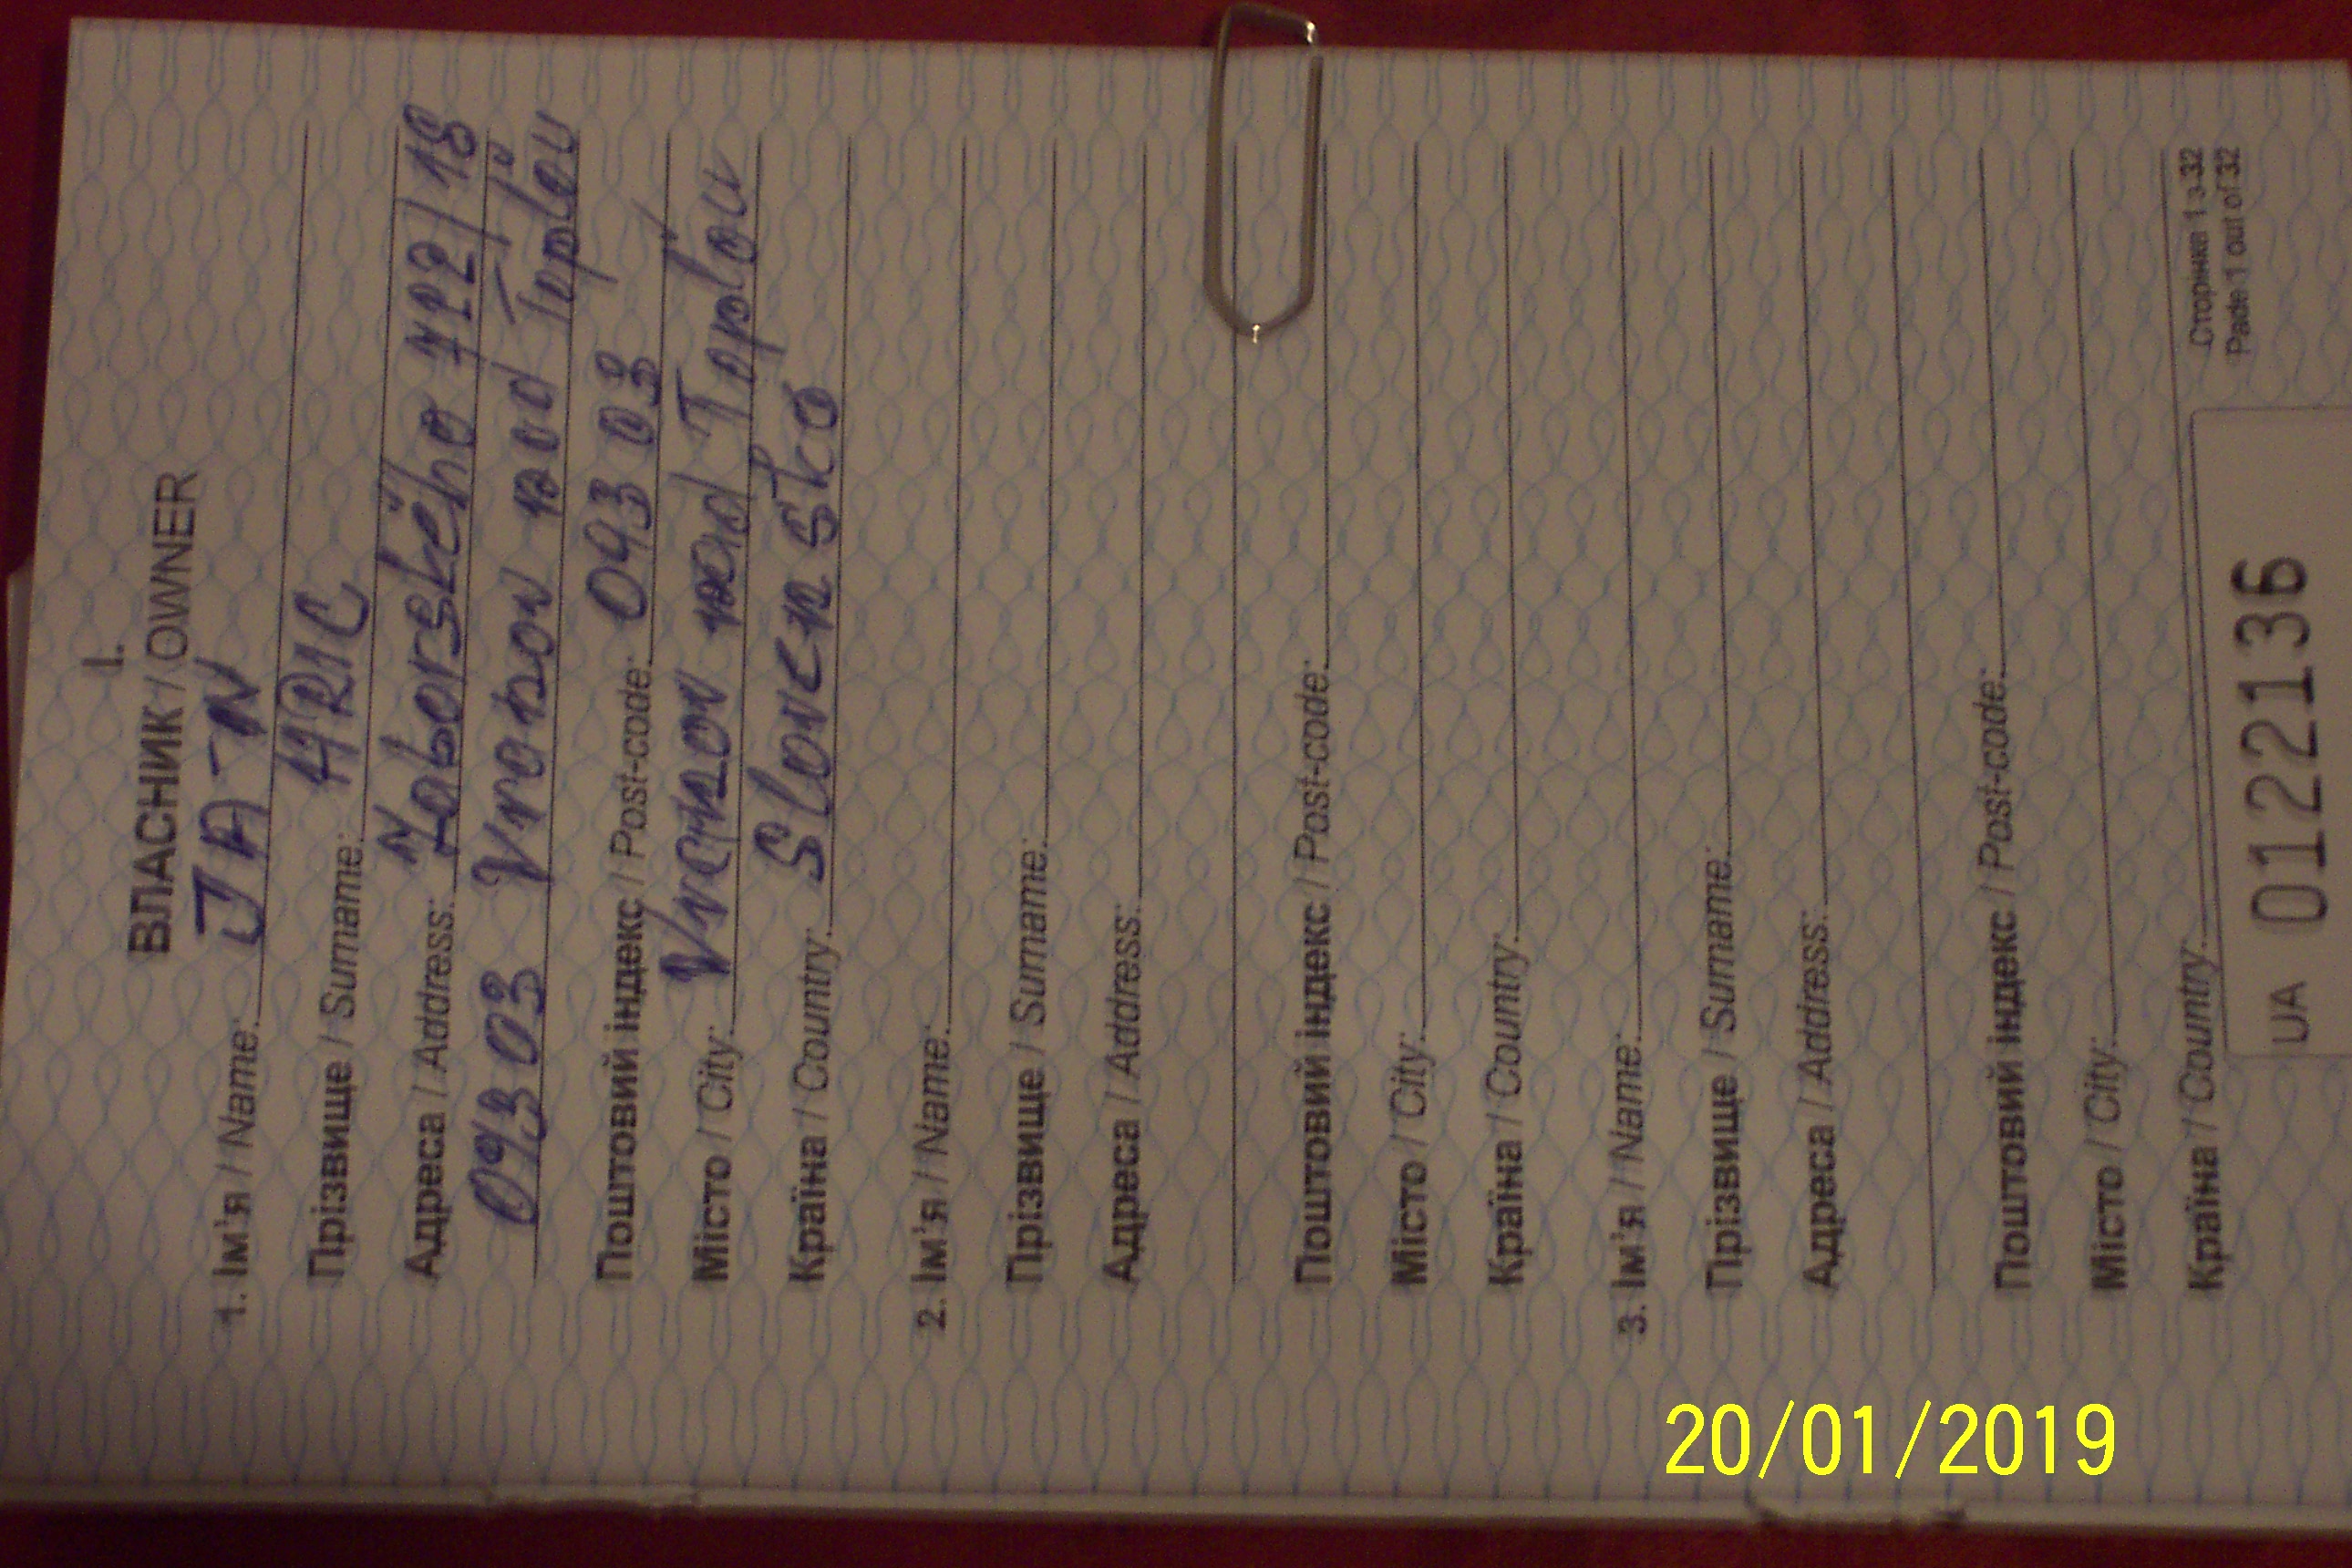 I.
ВЛАСНИК / OWNER
1. Ім'я / Name: JAN
Прізвище / Surname:
Адреса / Address: Záborského 722/18
093 03 Vranov nad Topľou
Поштовий індекс / Post-code: 093 03
Місто / City: Vranov nad Topľou
Країна / Country: Slovensko
2. Ім'я / Name:
Прізвище / Surname:
Адреса / Address:
Поштовий індекс / Post-code:
Місто / City:
Країна / Country:
3. Ім'я / Name:
Прізвище / Surname:
Адреса / Address:
Поштовий індекс / Post-code:
Місто / City:
Країна / Country:
Сторінка 1 з 32
Pade 1 out of 32
UA 01221136
20/01/2019